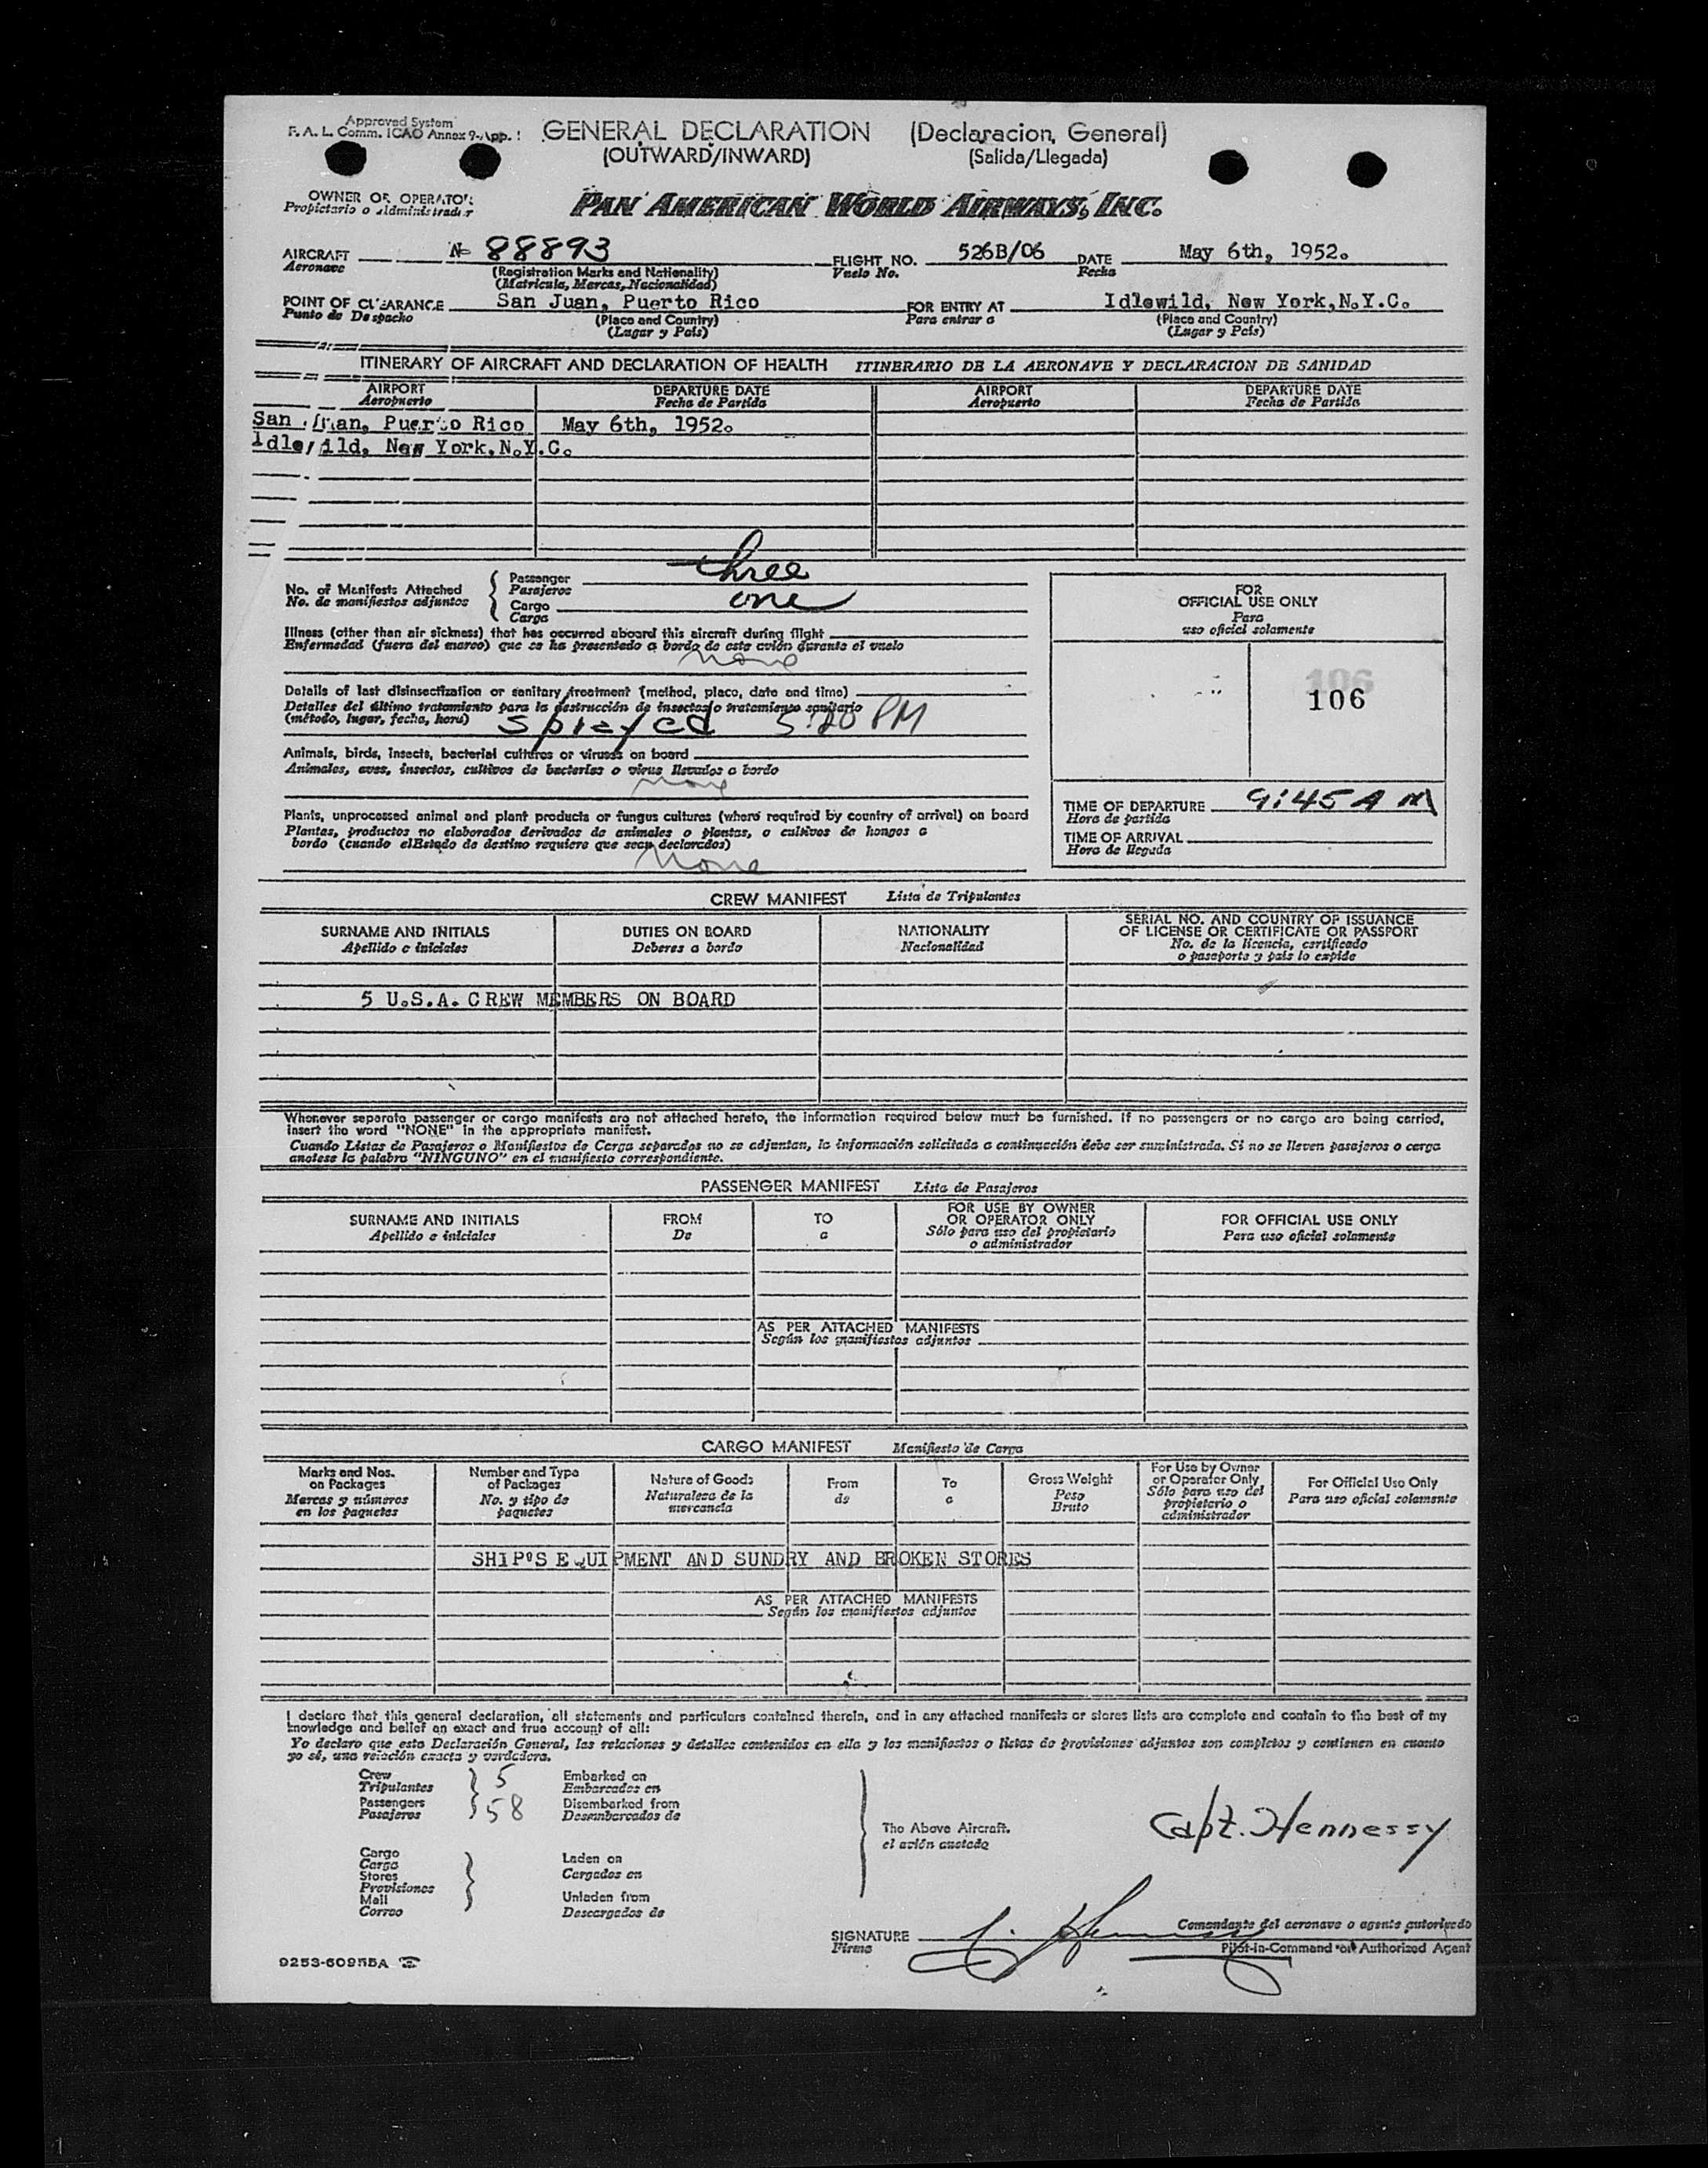 Approved System
F. A. L. Comm. ICAO Annex 9-App. 1
GENERAL DECLARATION (Declaracion, General)
(OUTWARD/INWARD) (Salida/Llegada)
OWNER OR OPERATOR
Propictario o Administrador
PAN AMERICAN WORLD AIRWAYS, INC.
AIRCRAFT No 88893 FLIGHT NO. 526B/06 DATE May 6th, 1952.
Aeronave (Registration Marks and Nationality) Vuelo No. Fecha
(Matricula, Mercas, Nacionalidad)
POINT OF CLEARANCE San Juan, Puerto Rico FOR ENTRY AT Idlewild, New York,N.Y.C.
Punto de Despacho (Place and Country) Para entrar a (Place and Country)
(Lugar y País) (Lugar y País)
ITINERARY OF AIRCRAFT AND DECLARATION OF HEALTH ITINERARIO DE LA AERONAVE Y DECLARACION DE SANIDAD
AIRPORT DEPARTURE DATE AIRPORT DEPARTURE DATE
Aeropuerto Fecha de Partida Aeropuerto Fecha de Partida
San Juan, Puerto Rico May 6th, 1952.
Idlewild, New York,N.Y.C.
No. of Manifests Attached
No. de manifiestos adjuntos
Passenger three
Pasajeros
Cargo one
Carga
Illness (other than air sickness) that has occurred aboard this aircraft during flight
Enfermedad (fuera del mareo) que se ha presentado a bordo de este avión durante el vuelo
None
Details of last disinsectization or sanitary treatment (method, place, date and time)
Detalles del último tratamiento para la destrucción de insectos o tratamiento sanitario
(método, lugar, fecha, hora)
Sprayed 5:20 PM
Animals, birds, insects, bacterial cultures or viruses on board
Animales, aves, insectos, cultivos de bacterias o virus llevados a bordo
None
Plants, unprocessed animal and plant products or fungus cultures (where required by country of arrival) on board
Plantas, productos no elaborados derivados de animales o plantas, o cultivos de hongos a
bordo (cuando el Estado de destino requiere que sean declarados)
None
FOR
OFFICIAL USE ONLY
Para
uso oficial solamente
106
106
TIME OF DEPARTURE 9:45 AM
Hora de partida
TIME OF ARRIVAL
Hora de llegada
CREW MANIFEST Lista de Tripulantes
SURNAME AND INITIALS DUTIES ON BOARD NATIONALITY SERIAL NO. AND COUNTRY OF ISSUANCE
OF LICENSE OR CERTIFICATE OR PASSPORT
Apellido e iniciales Deberes a bordo Nacionalidad No. de la licencia, certificado
o pasaporte y país lo expide
5 U.S.A. CREW MEMBERS ON BOARD
Whenever separate passenger or cargo manifests are not attached hereto, the information required below must be furnished. If no passengers or no cargo are being carried,
insert the word "NONE" in the appropriate manifest.
Cuando Listas de Pasajeros o Manifiestos de Carga separados no se adjuntan, la información solicitada a continuación debe ser suministrada. Si no se lleven pasajeros o carga
anotese la palabra "NINGUNO" en el manifiesto correspondiente.
PASSENGER MANIFEST Lista de Pasajeros
SURNAME AND INITIALS FROM TO FOR USE BY OWNER
OR OPERATOR ONLY FOR OFFICIAL USE ONLY
Apellido e iniciales De a Sólo para uso del propietario
o administrador Para uso oficial solamente
AS PER ATTACHED MANIFESTS
Según los manifiestos adjuntos
CARGO MANIFEST Manifiesto de Carga
Marks and Nos.
on Packages
Marcas y números
en los paquetes
Number and Type
of Packages
No. y tipo de
paquetes
Nature of Goods
Naturaleza de la
mercancía
From
de
To
a
Gross Weight
Peso
Bruto
For Use by Owner
or Operator Only
Sólo para uso del
propietario o
administrador
For Official Use Only
Para uso oficial solamente
SHIP'S EQUIPMENT AND SUNDRY AND BROKEN STORES
AS PER ATTACHED MANIFESTS
Según los manifiestos adjuntos
I declare that this general declaration, all statements and particulars contained therein, and in any attached manifests or stores lists are complete and contain to the best of my
knowledge and belief an exact and true account of all:
Yo declaro que esta Declaración General, las relaciones y detalles contenidos en ella y los manifiestos o listas de provisiones adjuntos son completos y contienen en cuanto
yo sé, una relación exacta y verdadera.
Crew 5 Embarked on
Tripulantes Embarcados en
Passengers 58 Disembarked from
Pasajeros Desembarcados de
Cargo
Carga
Stores
Provisiones
Mail
Correo
Laden on
Cargados en
Unladen from
Descargados de
The Above Aircraft.
el avión anotado
Capt. Hennessy
Comandante del aeronave o agente autorizado
SIGNATURE
Firma
Pilot-in-Command or Authorized Agent
9253-60955A